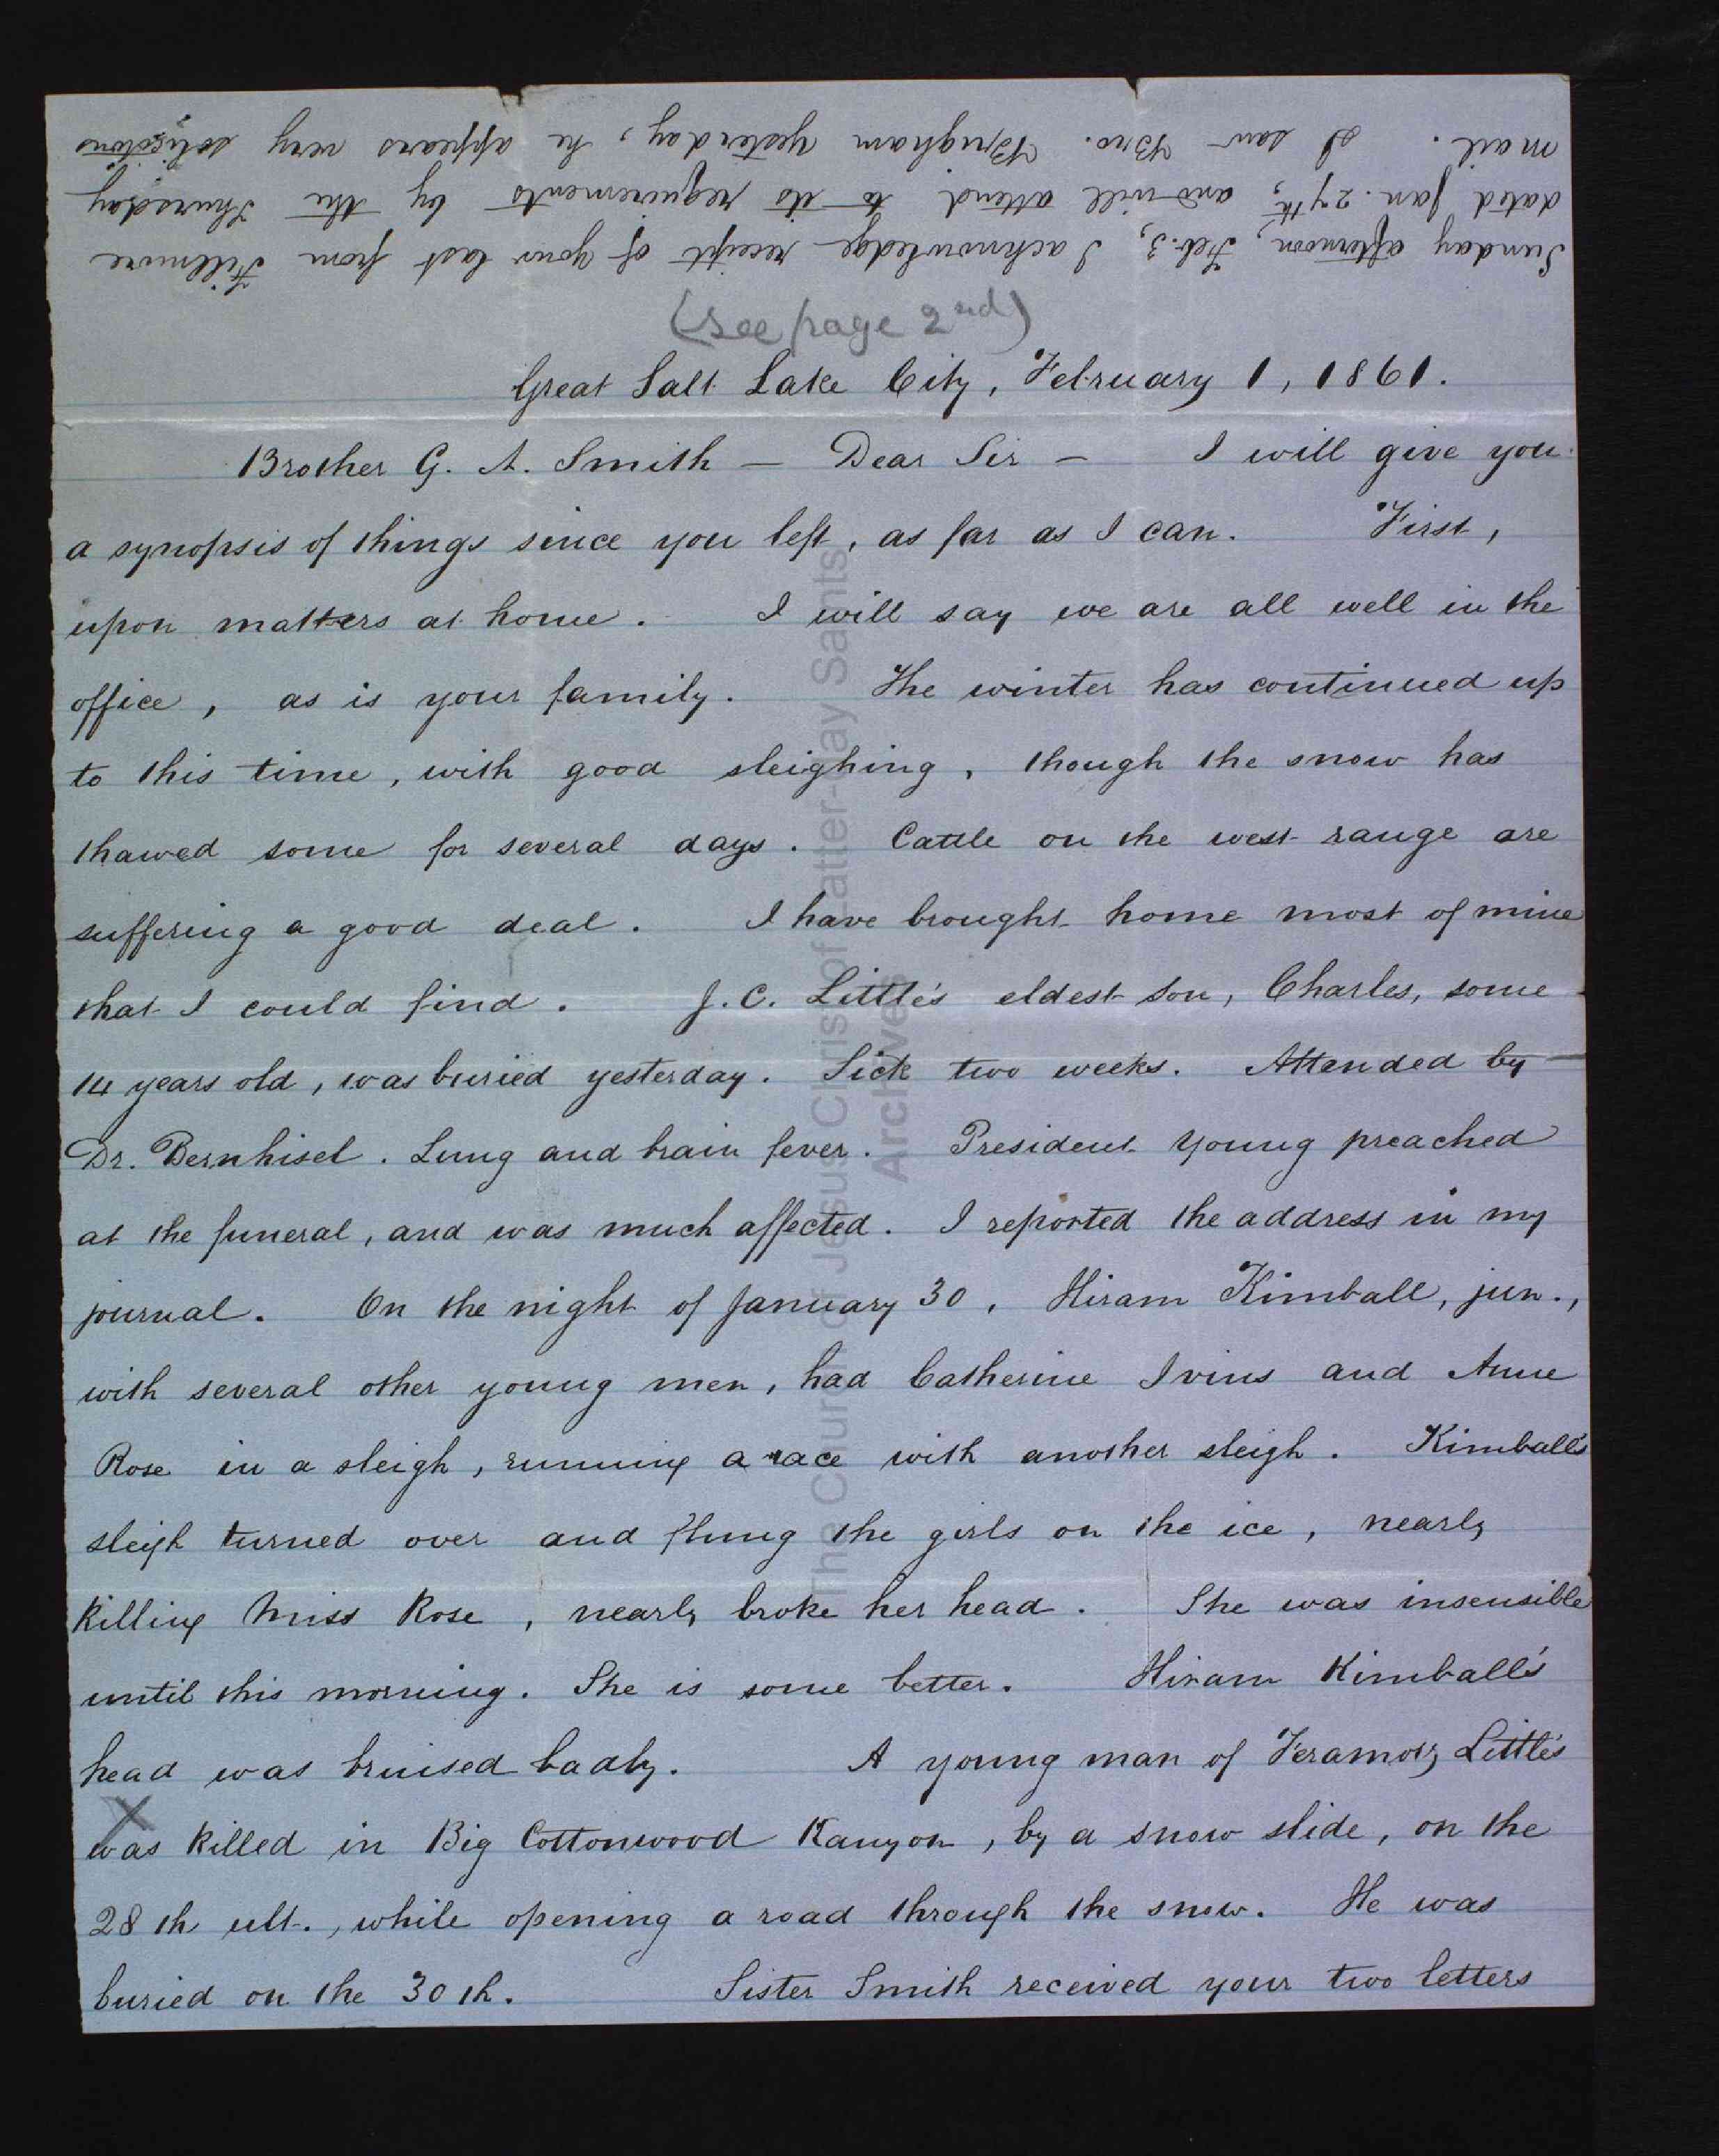 Sunday afternoon, Feb. 3, I acknowledge receipt of your last from Fillmore
dated Jan. 27th, and will attend to its requirements by the Thursday
mail. I saw Bro. Brigham yesterday, he appears very solicitous
(see page 2nd)
Great Salt Lake City, February 1, 1861.
Brother G. A. Smith — Dear Sir — I will give you
a synopsis of things since you left, as far as I can. First,
upon matters at home. I will say we are all well in the
office, as is your family. The winter has continued up
to this time, with good sleighing, though the snow has
thawed some for several days. Cattle on the west range are
suffering a good deal. I have brought home most of mine
that I could find. J. C. Little's eldest son, Charles, some
14 years old, was buried yesterday. Sick two weeks. Attended by
Dr. Bernhisel. Lung and brain fever. President Young preached
at the funeral, and was much affected. I reported the address in my
journal. On the night of January 30, Hiram Kimball, jun.,
with several other young men, had Catherine Ivins and Anne
Rose in a sleigh, running a race with another sleigh. Kimball's
sleigh turned over and flung the girls on the ice, nearly
killing Miss Rose, nearly broke her head. She was insensible
until this morning. She is some better. Hiram Kimball's
head was bruised badly. A young man of Feramorz Little's
X
was killed in Big Cottonwood Kanyon, by a snow slide, on the
28th ult., while opening a road through the snow. He was
buried on the 30th. Sister Smith received your two letters
The Church of Jesus Christ of Latter-day Saints
Archives